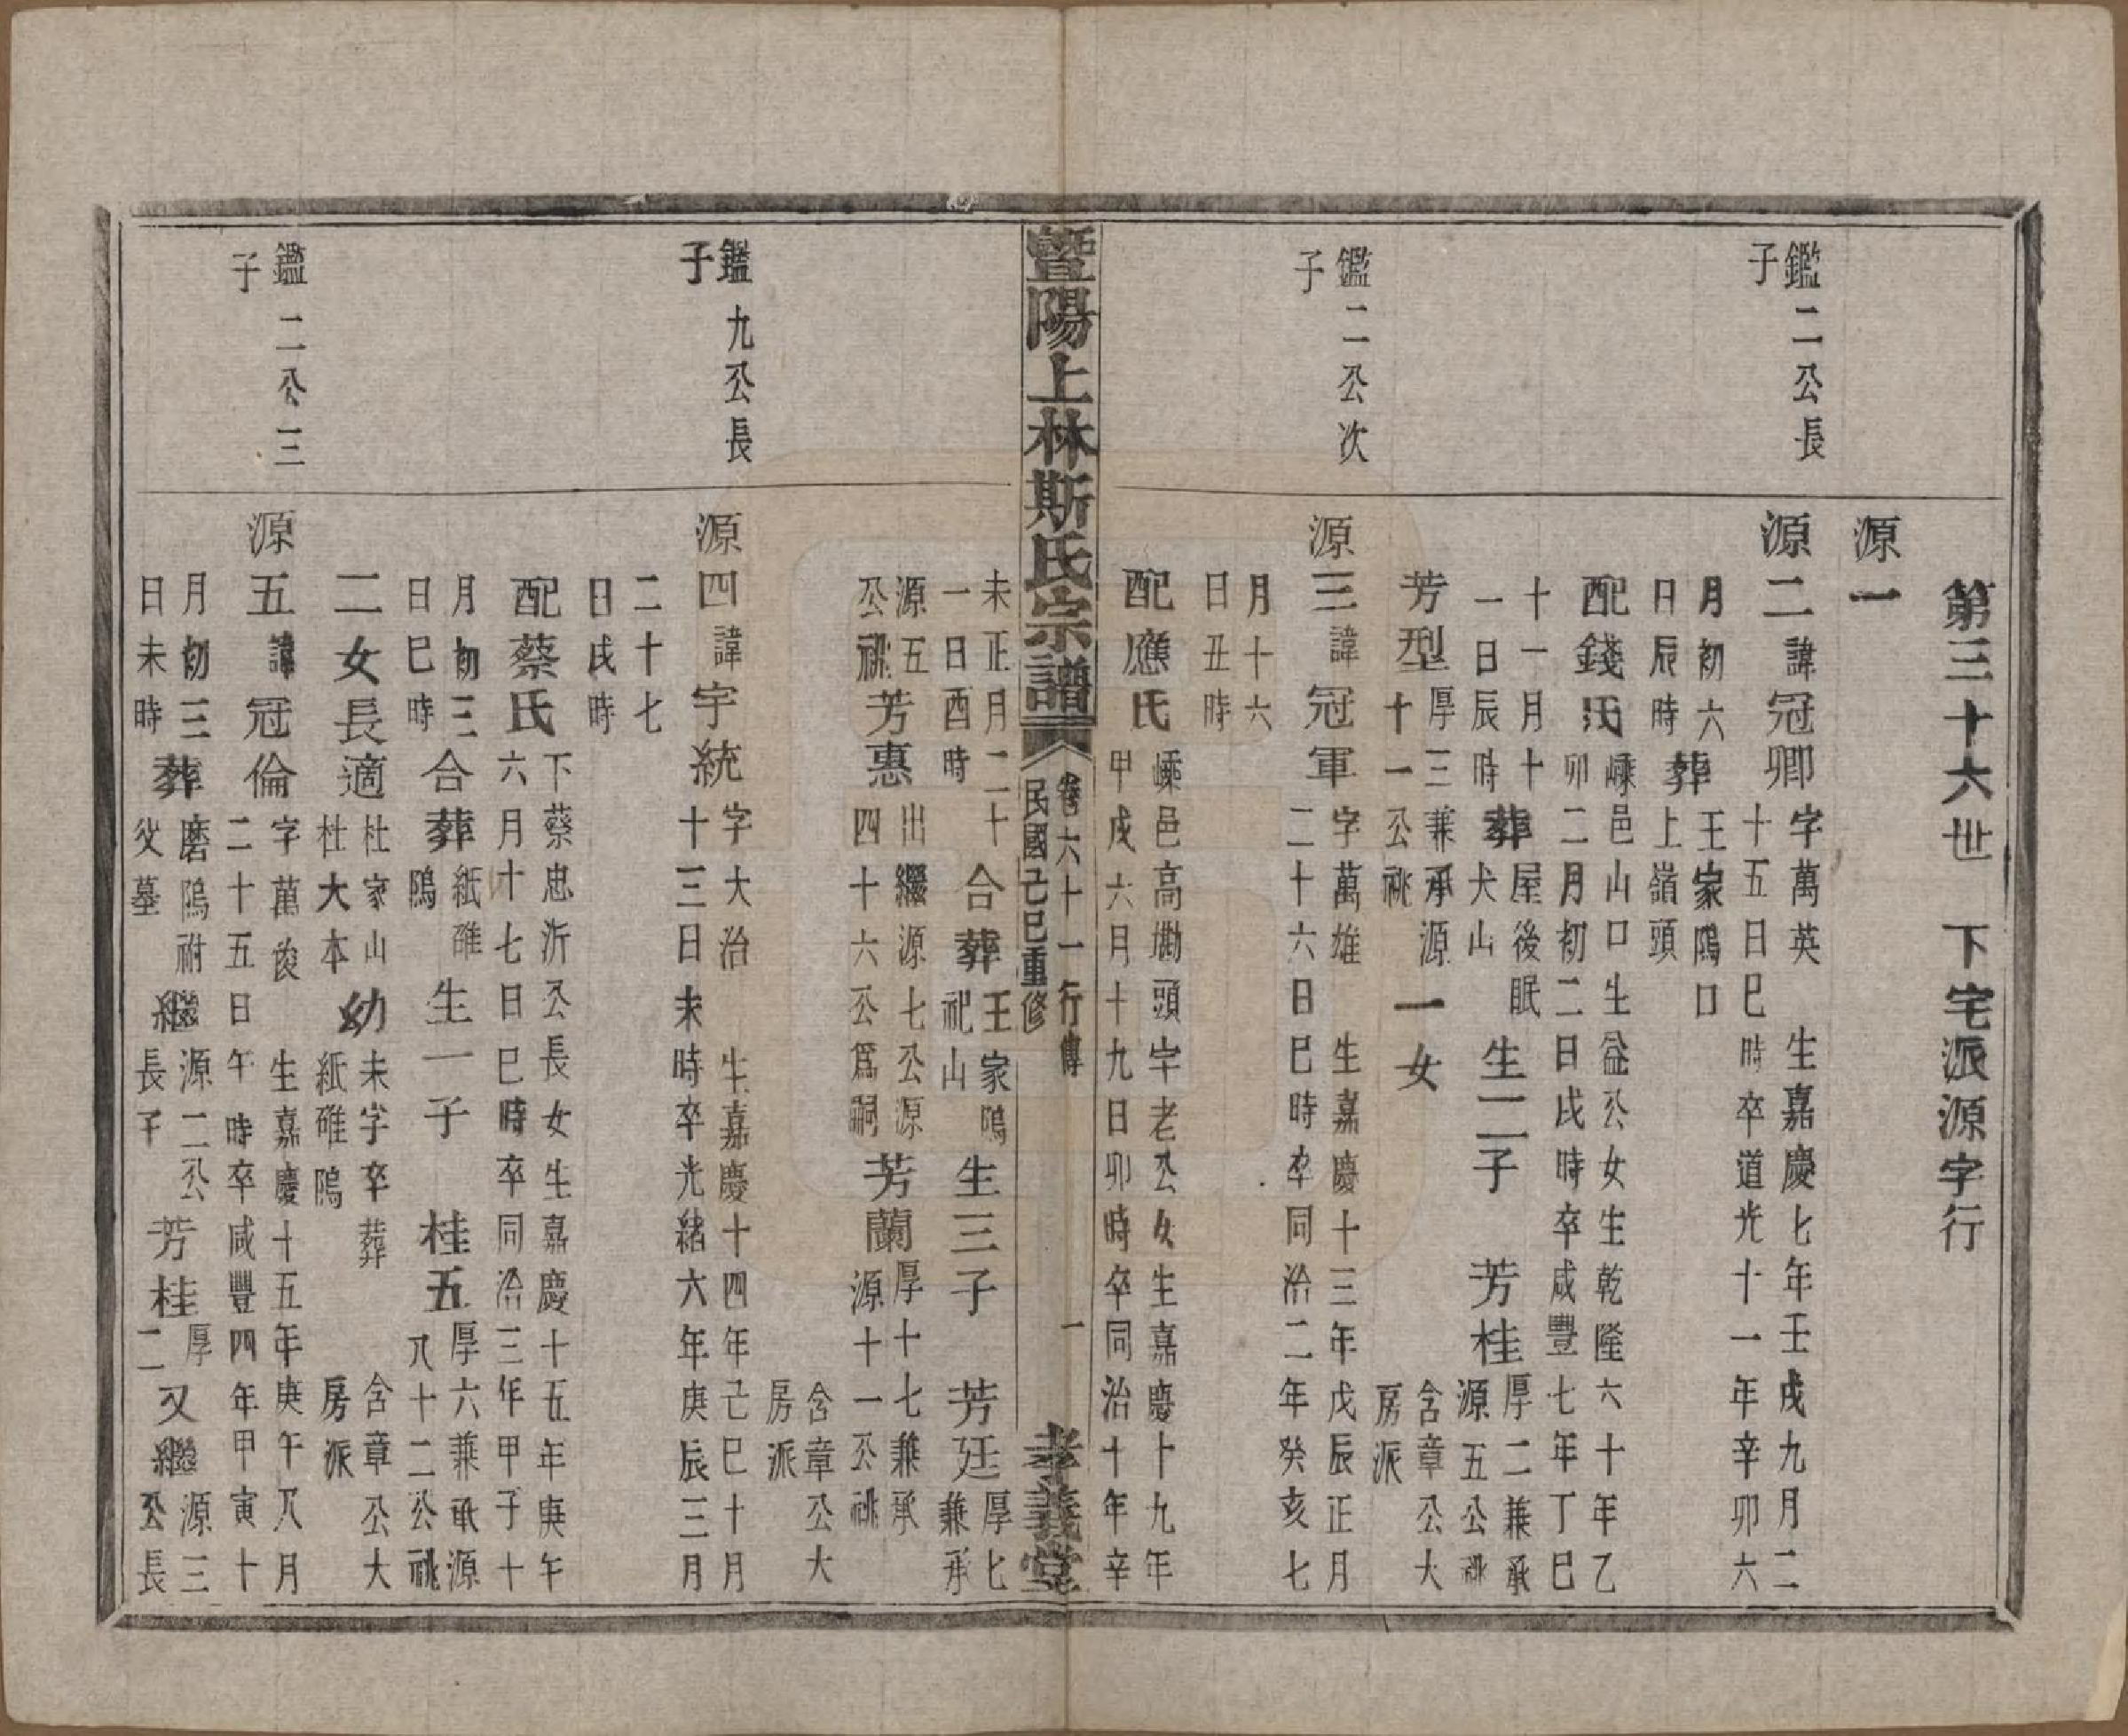 第三十六世 下宅派源字行
源一
鑑二公長
子
源二諱冠卿
字萬英 生嘉慶七年壬戌九月二
十五日巳時卒道光十一年辛卯六
月初六
日辰時
葬
王家隝口
上嶺頭
配錢氏
嵊邑山口生益公女生乾隆六十年乙
卯二月初二日戌時卒咸豐七年丁巳
十一月十
一日辰時
葬
屋後眠
犬山
生二子 芳桂
厚二兼承
源五公祧
芳型
厚三兼承源
十一公祧
一女
含章公大
房派
鑑二公次
子
源三諱冠軍
字萬雄 生嘉慶十三年戊辰正月
二十六日巳時卒同治二年癸亥七
月十六
日丑時
配應氏
嵊邑高塸頭宇老公女生嘉慶十九年
甲戌六月十九日卯時卒同治十年辛
暨陽上林斯氏宗譜
卷六十一行傳
民國己巳重修
一
孝義堂
未正月二十
一日酉時
合葬
王家隝
祀山
生三子 芳廷
厚七
兼承
源五
公祧
芳惠
出繼源七公源
四十六公爲嗣
芳蘭
厚十七兼承
源十一公祧
含章公大
房派
鑑九公長
子
源四諱宇統
字大治 生嘉慶十四年己巳十月
十三日未時卒光緒六年庚辰三月
二十七
日戌時
配蔡氏
下蔡忠沂公長女生嘉慶十五年庚午
六月十七日巳時卒同治三年甲子十
月初三
日巳時
合葬
紙碓
隝
生一子 桂五
厚六兼承源
八十二公祧
二女長適
杜家山
杜大本
幼
未字卒葬
紙碓隝
含章公大
房派
鑑二公三
子
源五諱冠倫
字萬俊 生嘉慶十五年庚午八月
二十五日午時卒咸豐四年甲寅十
月初三
日未時
葬
磨隝祔
父墓
繼
源二公
長子
芳桂
厚
二
又繼
源三
公長